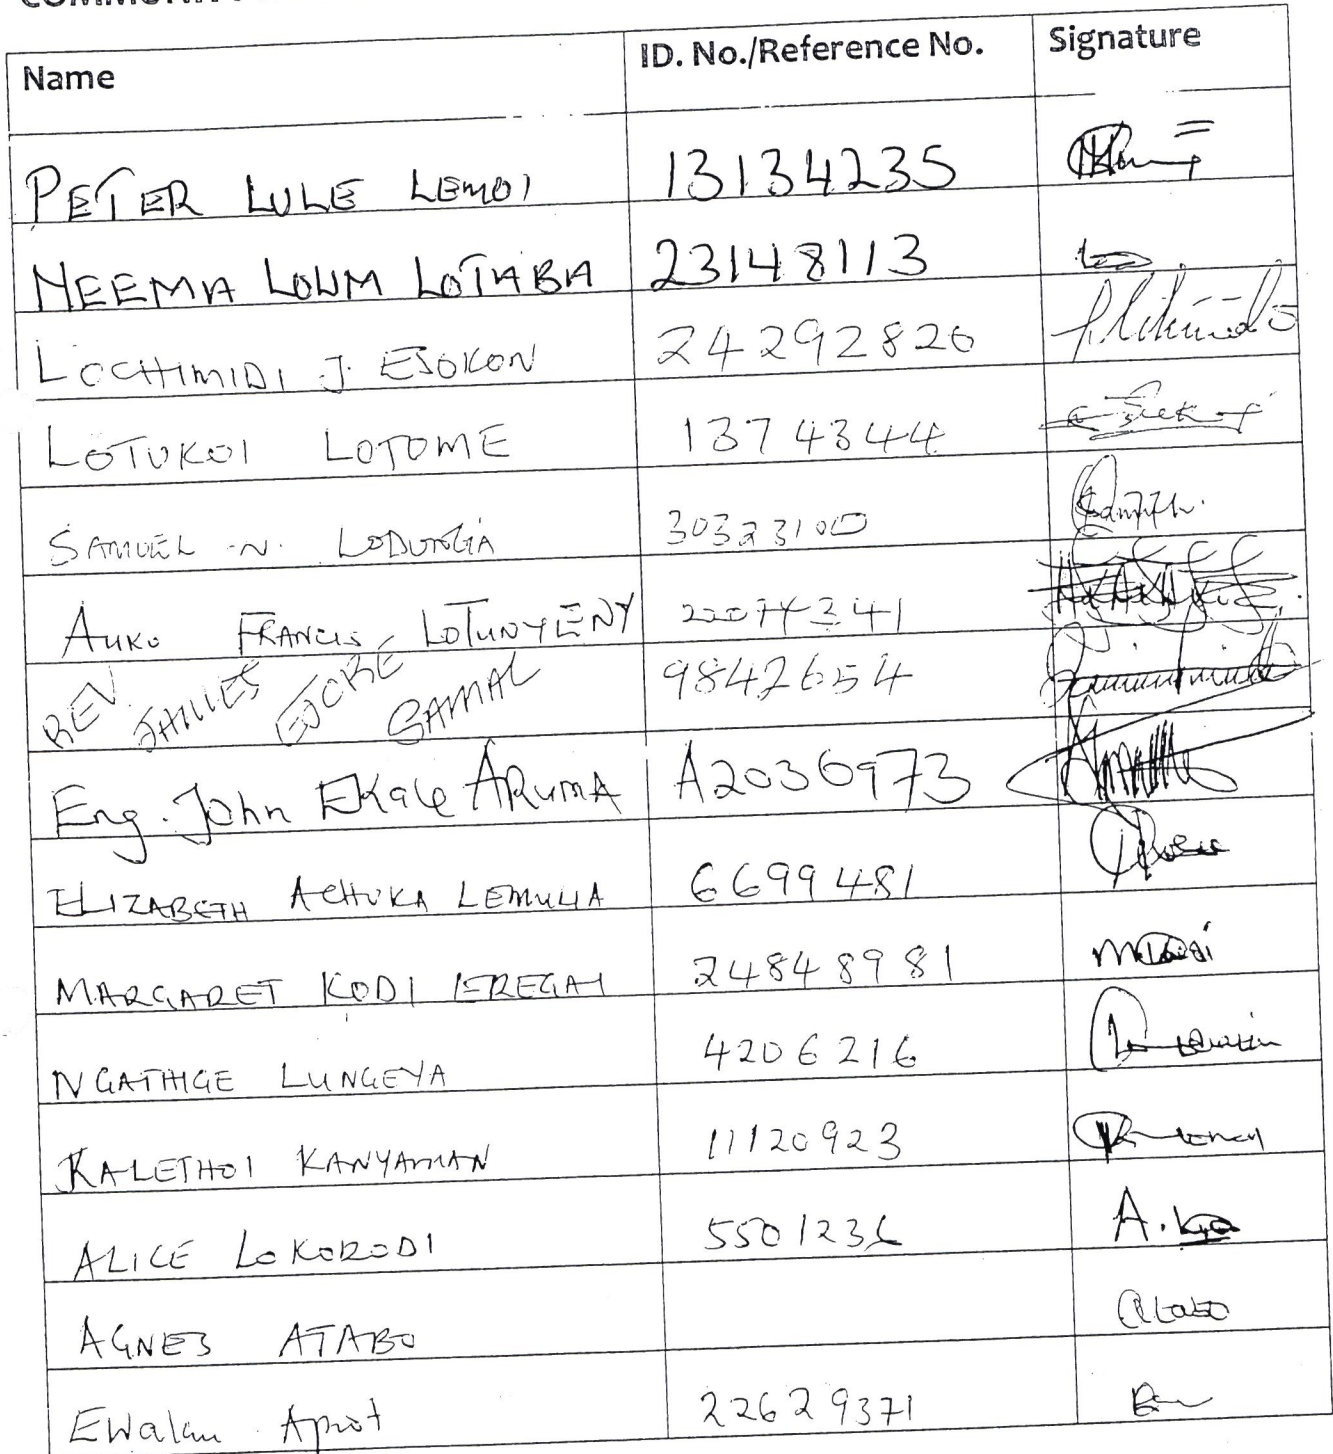 Name ID. No./Reference No. Signature
PETER LULE LEMOI 13134235
NEEMA LOUM LOTABA 23148113
LOCHIMIDI J. ESOKON 24292820
LOTUKOI LOTOME 1374344
SAMUEL N. LODUNGIA 30323100
AUKO FRANCIS LOTUNYENY 22074341
REV. JAMES EJORE SAMAL 9842654
Eng. John EKALE ARUMA A2036973
ELIZABETH ACHUKA LEMUYA 6699481
MARGARET KODI EREGAI 24848981
NGATHIGE LUNGEYA 4206216
KALETHOI KANYAMAN 11120923
ALICE LOKORODI 5501236 A.
AGNES ATABO
Ewalan Apiot 22629371